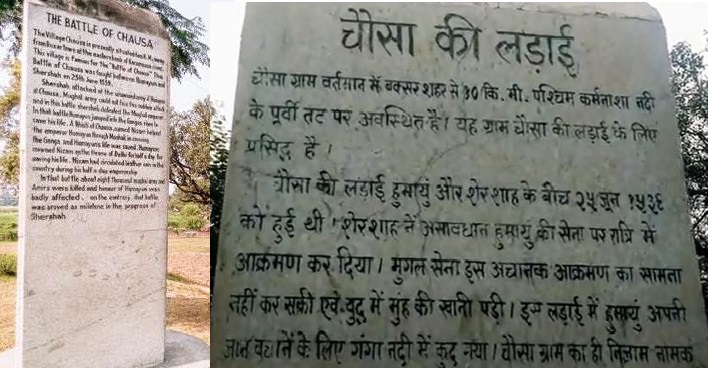 THE BATTLE OF CHAUSA
The Village Chausa is presently situated 10 K.M. away
from Buxar town at the eastern bank of Karamnasa river
This village is famous for The "Battle of Chausa" The
Battle of Chausa was fought between Humayun and
Shershah on 25th June 1539.
Shershah attacked at the unaware army of Humayun
at Chausa. Mughal army could not face this sudden attack
and in this battle shershah defeated the Mughal emperor
In that battle Humayun jumped into the Ganges river to
save his life. A Bhisti of Chausa, named Nizam helped
the emperor Humayun through Mashak in crossing
the Ganga and Humayun's life was saved. Humayun
crowned Nizam on the throne of Delhi for half a day for
saving his life. Nizam had circulated leather coin in the
country during his half a day emperorship
In that battle about eight thousand mughal army and
Amirs were killed and honour of Humayun was
badly affected. on the contrary, that battle
was proved as milestone in the progress of
Shershah
चौसा की लड़ाई
चौसा ग्राम वर्तमान में बक्सर शहर से १० कि. मी. पश्चिम कर्मनाशा नदी
के पूर्वी तट पर अवस्थित है। यह ग्राम चौसा की लड़ाई के लिए
प्रसिद्ध है।
चौसा की लड़ाई हुमायुं और शेरशाह के बीच २५ जून १५३९
को हुई थी। शेरशाह ने असावधान हुमायुं की सेना पर रात्रि में
आक्रमण कर दिया। मुगल सेना इस अचानक आक्रमण का सामना
नहीं कर सकी एवं युद्ध में मुंह की खानी पड़ी। इस लड़ाई में हुमायुं अपनी
जान बचाने के लिए गंगा नदी में कुद गया। चौसा ग्राम का ही निजाम नामक